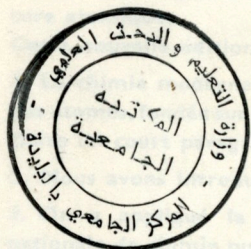 وزارة التعليم والبحث العلمي
المكتبة
الجامعية
المركز الجامعي بالبليدة